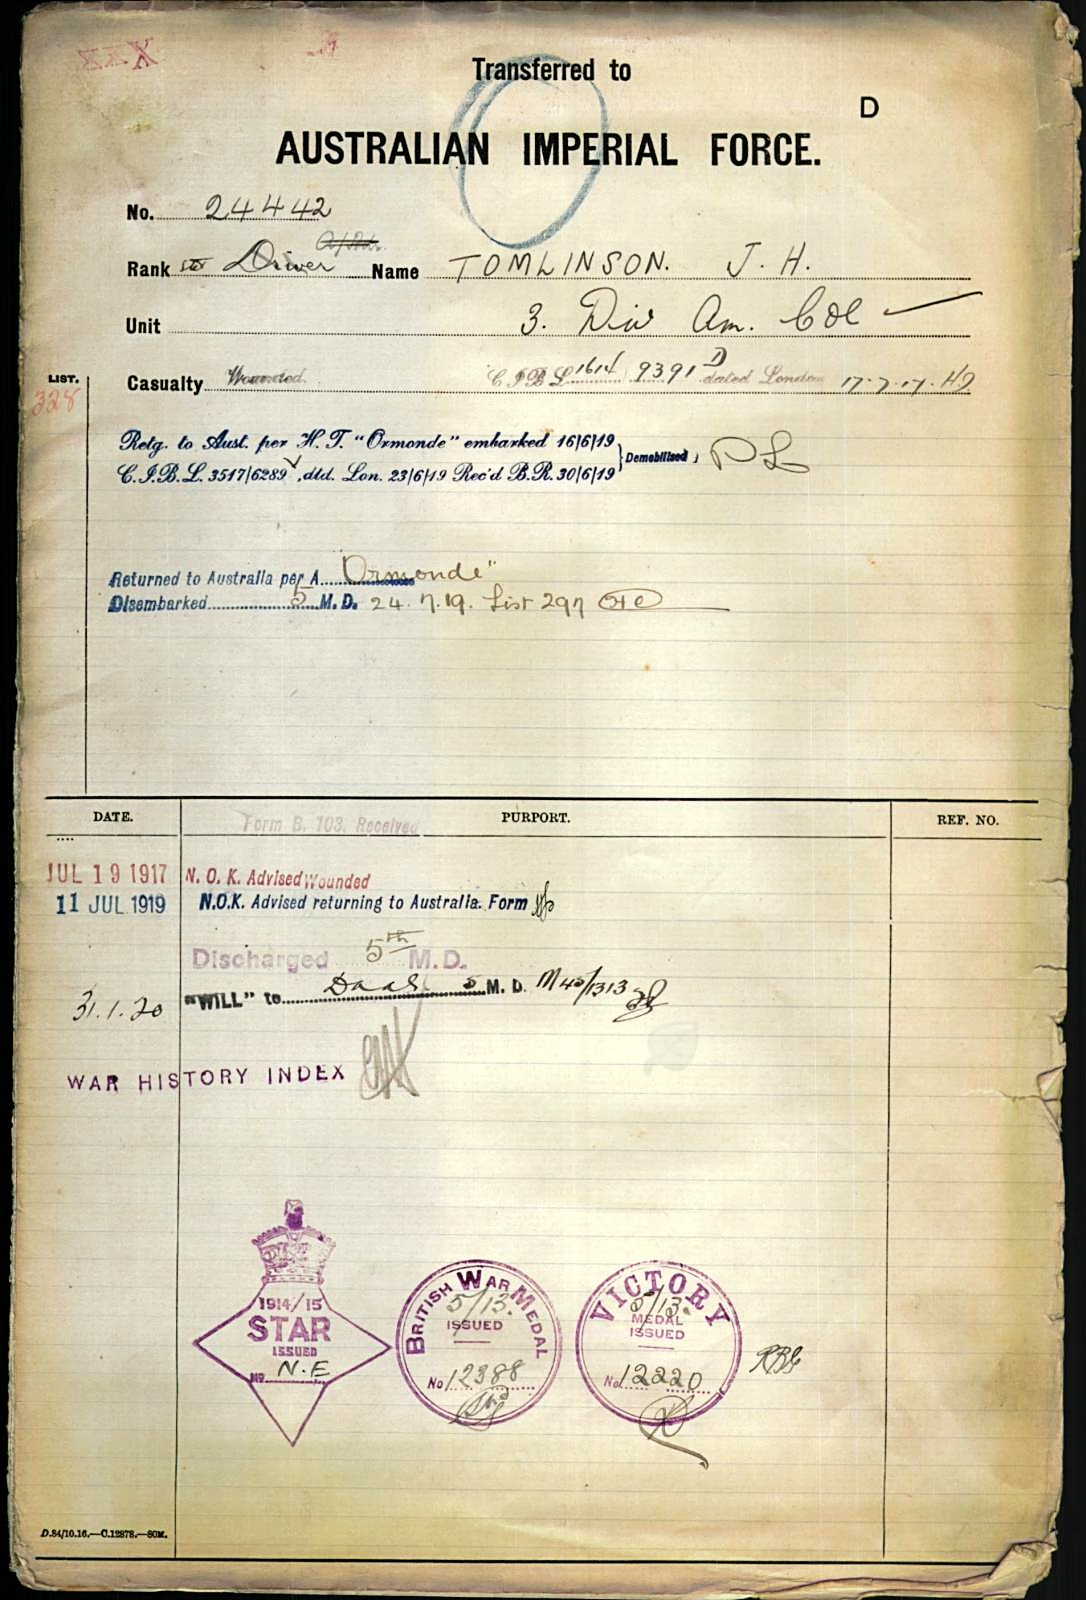 XXX
Transferred to
D
AUSTRALIAN IMPERIAL FORCE.
No. 24442
Rank Driver Name TOMLINSON. J. H.
Unit 3. Div Am. Col
LIST.
328
Casualty Wounded. C I B L 1614 9391 D dated London 17.7.17.
Retg. to Aust. per H. T. "Ormonde" embarked 16/6/19
C.I.B.L. 3517/6289, dtd. Lon. 23/6/19 Rec'd B.R. 30/6/19 Demobilised,
Returned to Australia per A. Ormonde"
Disembarked 5 M.D. 24.7.19. List 297
DATE. PURPORT. REF. NO.
Form B. 103. Received
JUL 19 1917 N. O. K. Advised Wounded
11 JUL 1919 N.O.K. Advised returning to Australia. Form
Discharged 5th M.D.
31.1.20 "WILL" to 5 M. D. M45/1313
WAR HISTORY INDEX
1914/15
STAR
ISSUED
No N.E
BRITISH WAR MEDAL
5/13.
ISSUED
No 12388
VICTORY
5/13.
MEDAL
ISSUED
No. 12220
D.84/10.16.—C.12878.—80M.